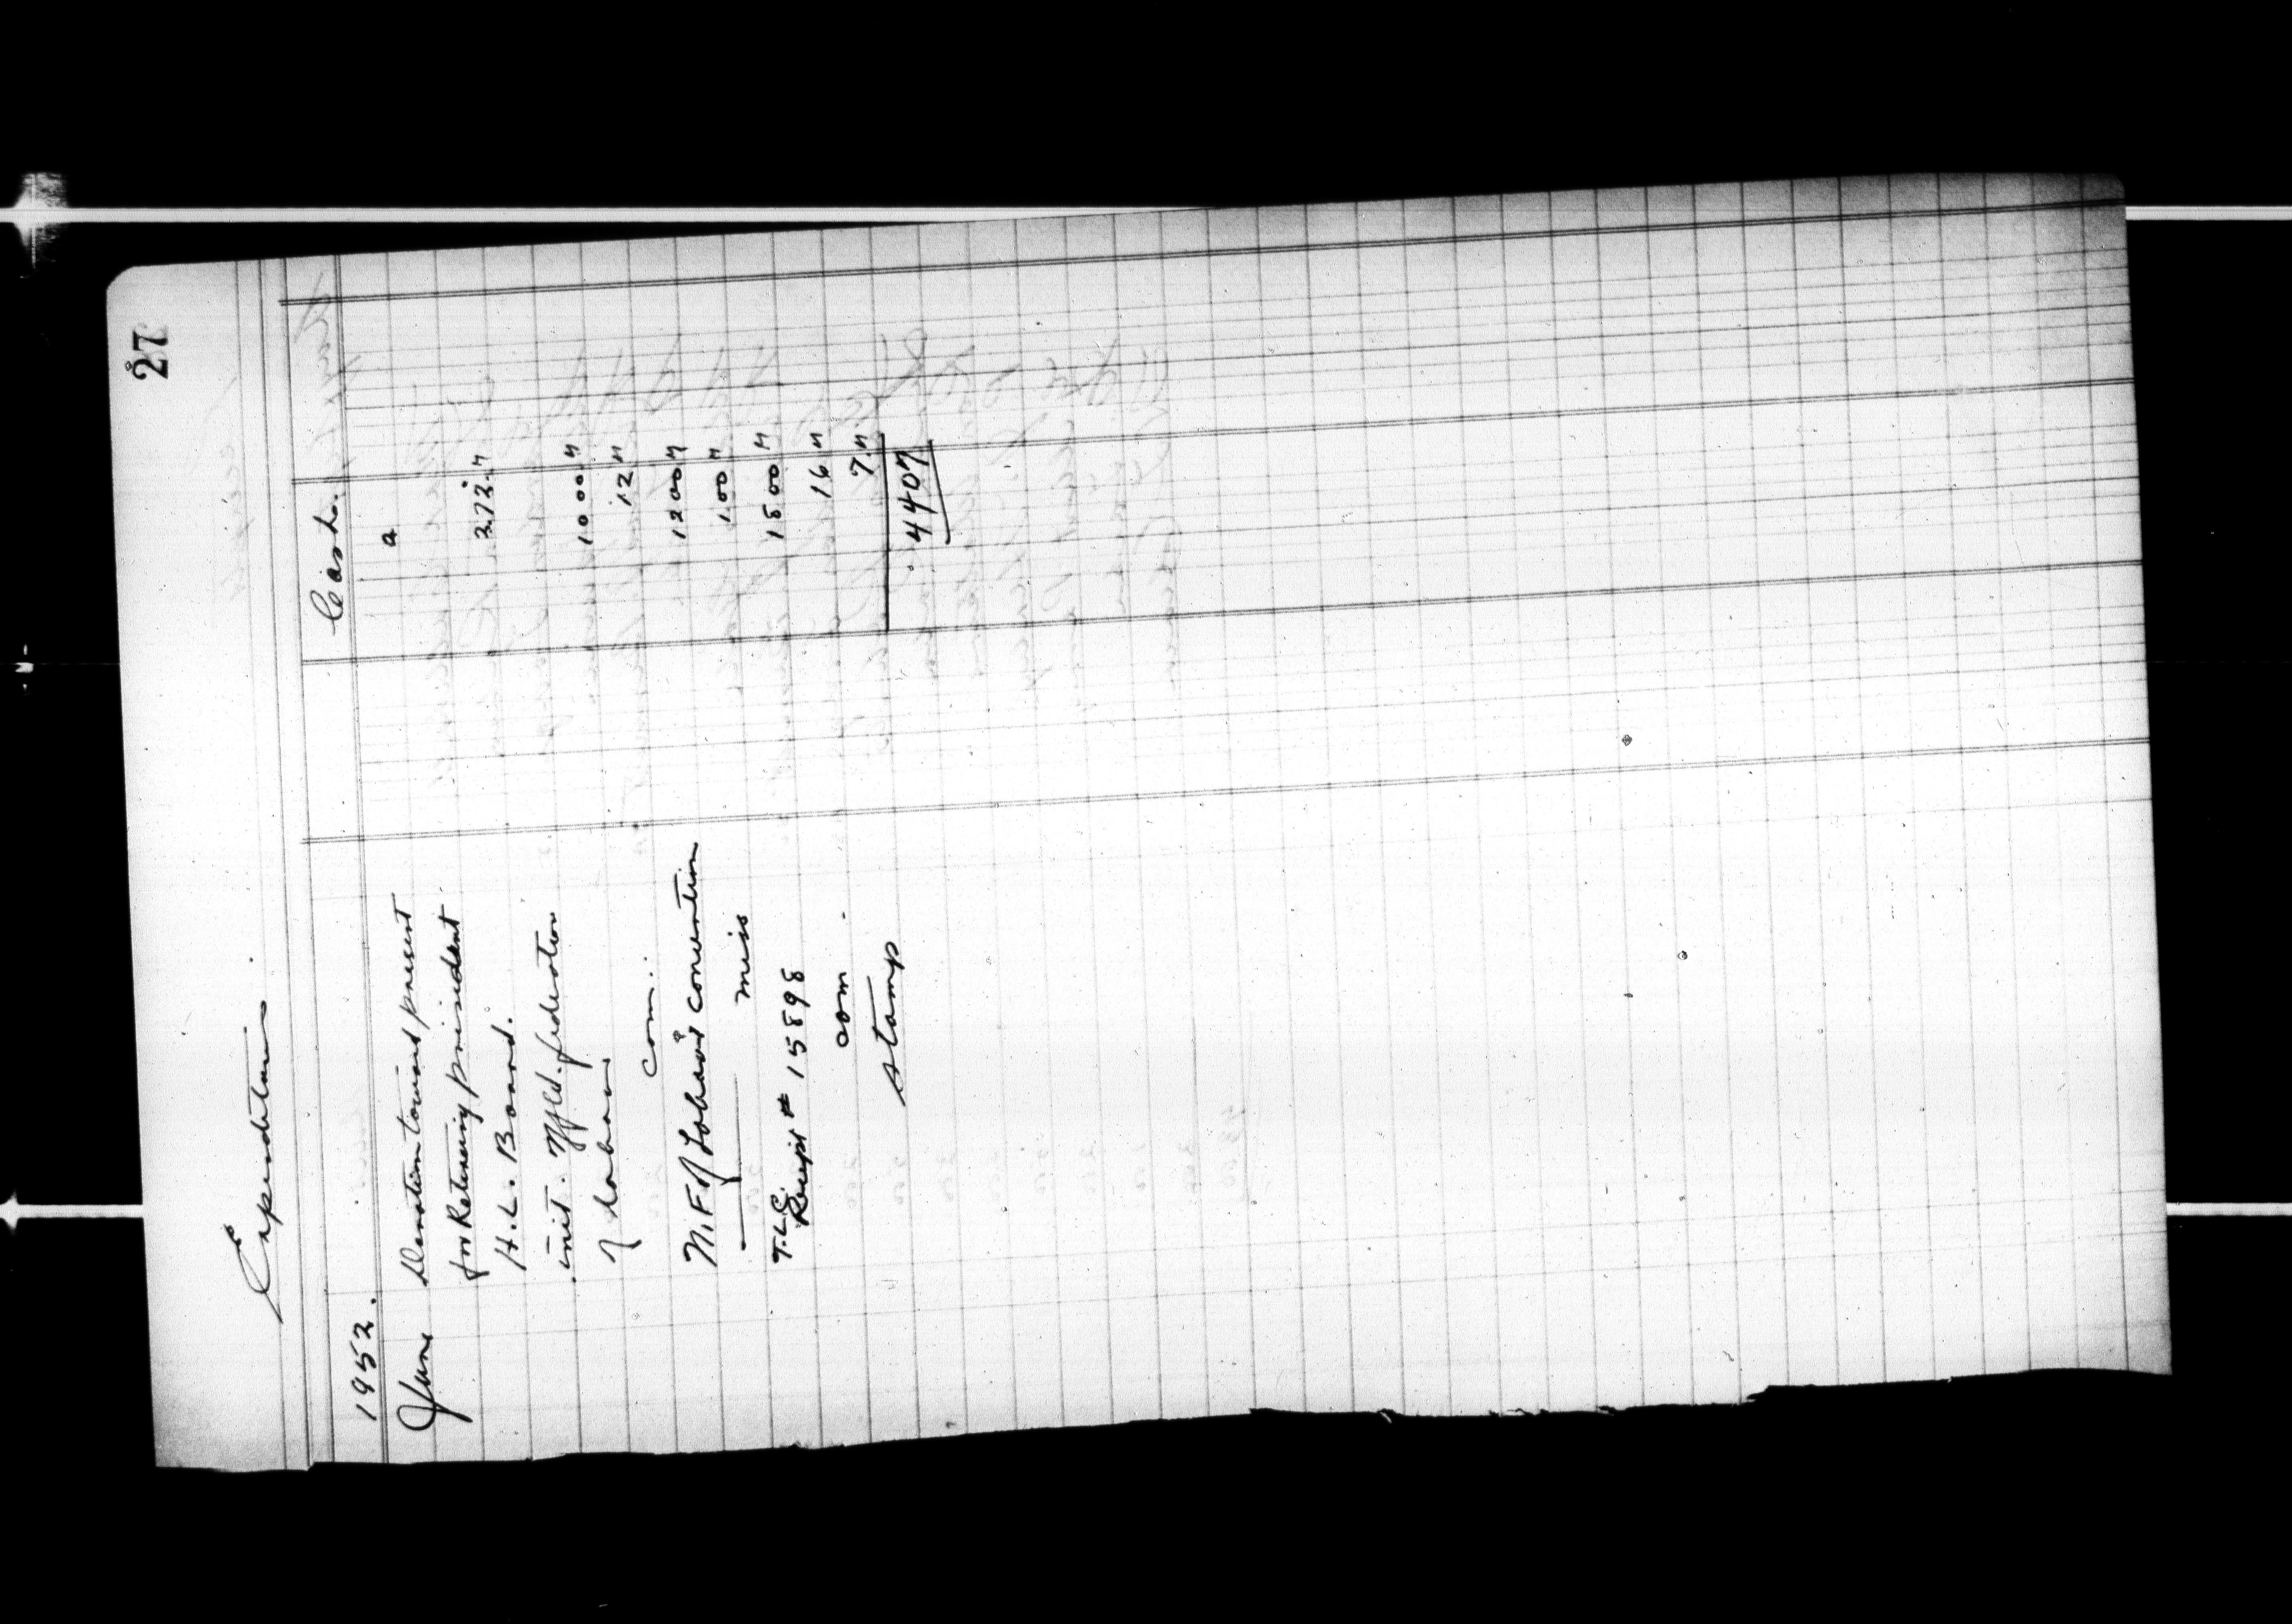 27
Expenditures.
1952. Cash.
June Donation toward present a
for Retireing president 2.72. "
H. L. Board.
init. Nfld. federation 10 00 "
of Labour 12 "
com. 12 00 "
N. F of Labour convention 1.00 "
— miss 18 00 "
T.L.C. Receipt # 15898 16 "
com. 7. "
stamp 4407